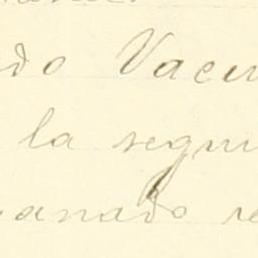 do Vacu
la segun
anado re